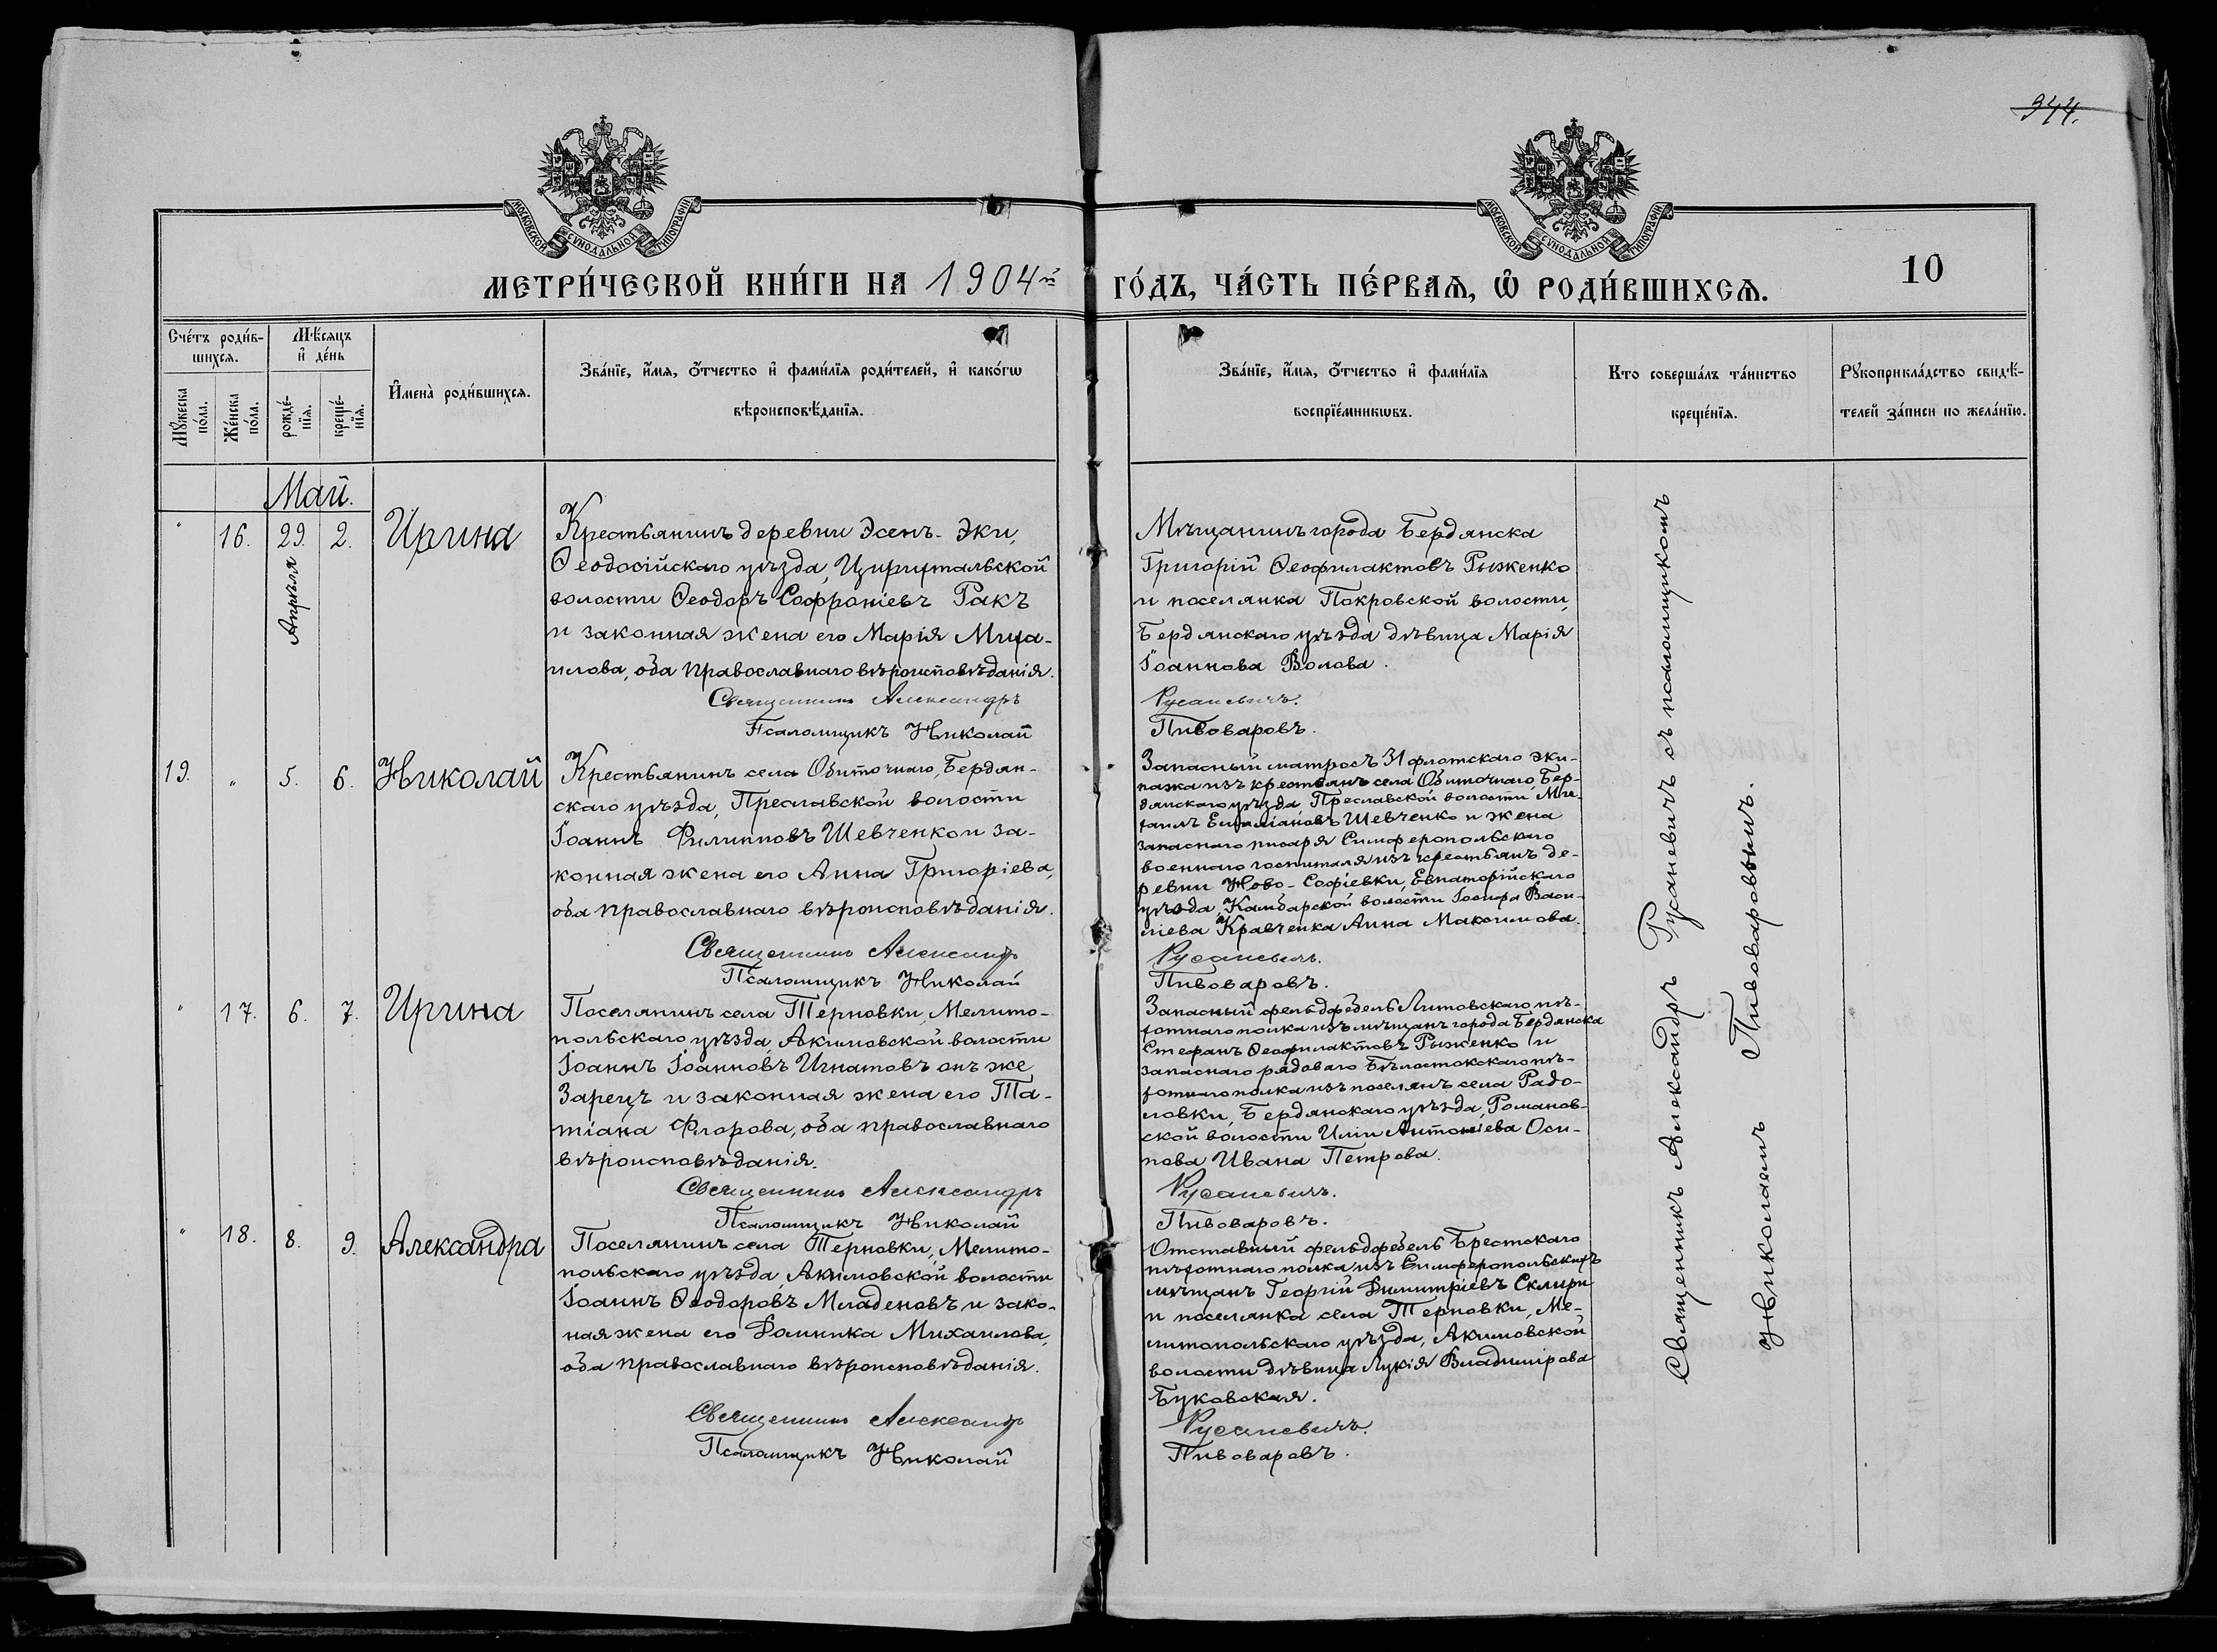 944.
МОСКОВСКОЙ СѴНОДАЛЬНОЙ ТИПОГРАФІИ
МОСКОВСКОЙ СѴНОДАЛЬНОЙ ТИПОГРАФІИ
МЕТРИ́ЧЕСКОЙ КНИ́ГИ НА 1904й ГО́ДЪ, ЧА́СТЬ ПЕ́РВАѦ, Ѡ҆ РОДИ́ВШИХСѦ.
10
Сче́тъ роди́в-
шихсѧ.
Мꙋ́жеска
по́ла.
Же́нска
по́ла.
Мѣ́сѧцъ
и҆ де́нь
рожде́-
нїѧ.
креще́-
нїѧ.
И҆мена̀ роди́вшихсѧ.
Зва́нїе, и҆́мѧ, ѻ҆́тчество и҆ фами́лїѧ роди́телей, и҆ како́гѡ
вѣроисповѣ́данїѧ.
Зва́нїе, и҆́мѧ, ѻ҆́тчество и҆ фами́лїѧ
воспрїе́мникѡвъ.
Кто соверша́лъ та́инство
креще́нїѧ.
Рꙋкоприкла́дство свидѣ́-
телей за́писи по жела́нїю.
Май.
" 16. 29. Апрѣля 2. Ирина
Крестьянинъ деревни Эсенъ-Эки,
Ѳеодосійскаго уѣзда, Цюрутальской
волости Ѳеодоръ Софроніевъ Ракъ
и законная жена его Марія Миха-
илова, оба православнаго вѣроисповѣданія.
Священникъ Александръ
Псаломщикъ Николай
Мѣщанинъ города Бердянска
Григорій Ѳеофилактовъ Рыженко
и поселянка Покровской волости,
Бердянскаго уѣзда дѣвица Марія
Іоаннова Волова.
Русаневичъ.
Пивоваровъ.
19. " 5. 6. Николай
Крестьянинъ села Обиточнаго, Бердян-
скаго уѣзда, Преславской волости
Іоаннъ Филипповъ Шевченко и за-
конная жена его Анна Григоріева,
оба православнаго вѣроисповѣданія.
Священникъ Александръ
Псаломщикъ Николай
Запасный матросъ 31 флотскаго эки-
пажа изъ крестьянъ села Обиточнаго, Бер-
дянскаго уѣзда Преславской волости Ми-
хаилъ Емиліановъ Шевченко и жена
запаснаго писаря Симферопольскаго
военнаго госпиталя изъ крестьянъ де-
ревни Ново-Софіевки, Евпаторійскаго
уѣзда, Камбарской волости Іосифа Васи-
ліева Кравченка Анна Максимова.
Русаневичъ.
Пивоваровъ.
" 17. 6. 7. Ирина
Поселянинъ села Терновки, Мелито-
польскаго уѣзда Акимовской волости
Іоаннъ Іоанновъ Игнатовъ онъ же
Зарецъ и законная жена его Та-
тіана Флорова, оба православнаго
вѣроисповѣданія.
Священникъ Александръ
Псаломщикъ Николай
Запасный фельдфебель Литовскаго пѣ-
хотнаго полка изъ мѣщанъ города Бердянска
Стефанъ Ѳеофилактовъ Рыженко и
запаснаго рядоваго Бѣлостокскаго пѣ-
хотнаго полка изъ поселянъ села Радо-
ловки, Бердянскаго уѣзда, Романов-
ской волости Иліи Антоніева Оси-
пова Ивана Петрова.
Русаневичъ.
Пивоваровъ.
" 18. 8. 9. Александра
Поселянинъ села Терновки, Мелито-
польскаго уѣзда, Акимовской волости
Іоаннъ Ѳеодоровъ Младеновъ и зако-
ная жена его Домника Михаилова,
оба православнаго вѣроисповѣданія.
Священникъ Александръ
Псаломщикъ Николай
Отставный фельдфебель Брестскаго
пѣхотнаго полка изъ Симферопольскихъ
мѣщанъ Георгій Димитріевъ Склири
и поселянка села Терновки, Ме-
литопольскаго уѣзда, Акимовской
волости дѣвица Лукія Владимірова
Буковская.
Русаневичъ.
Пивоваровъ.
Священникъ Александръ Русаневичъ съ псаломщикомъ
Николаемъ Пивоваровымъ.